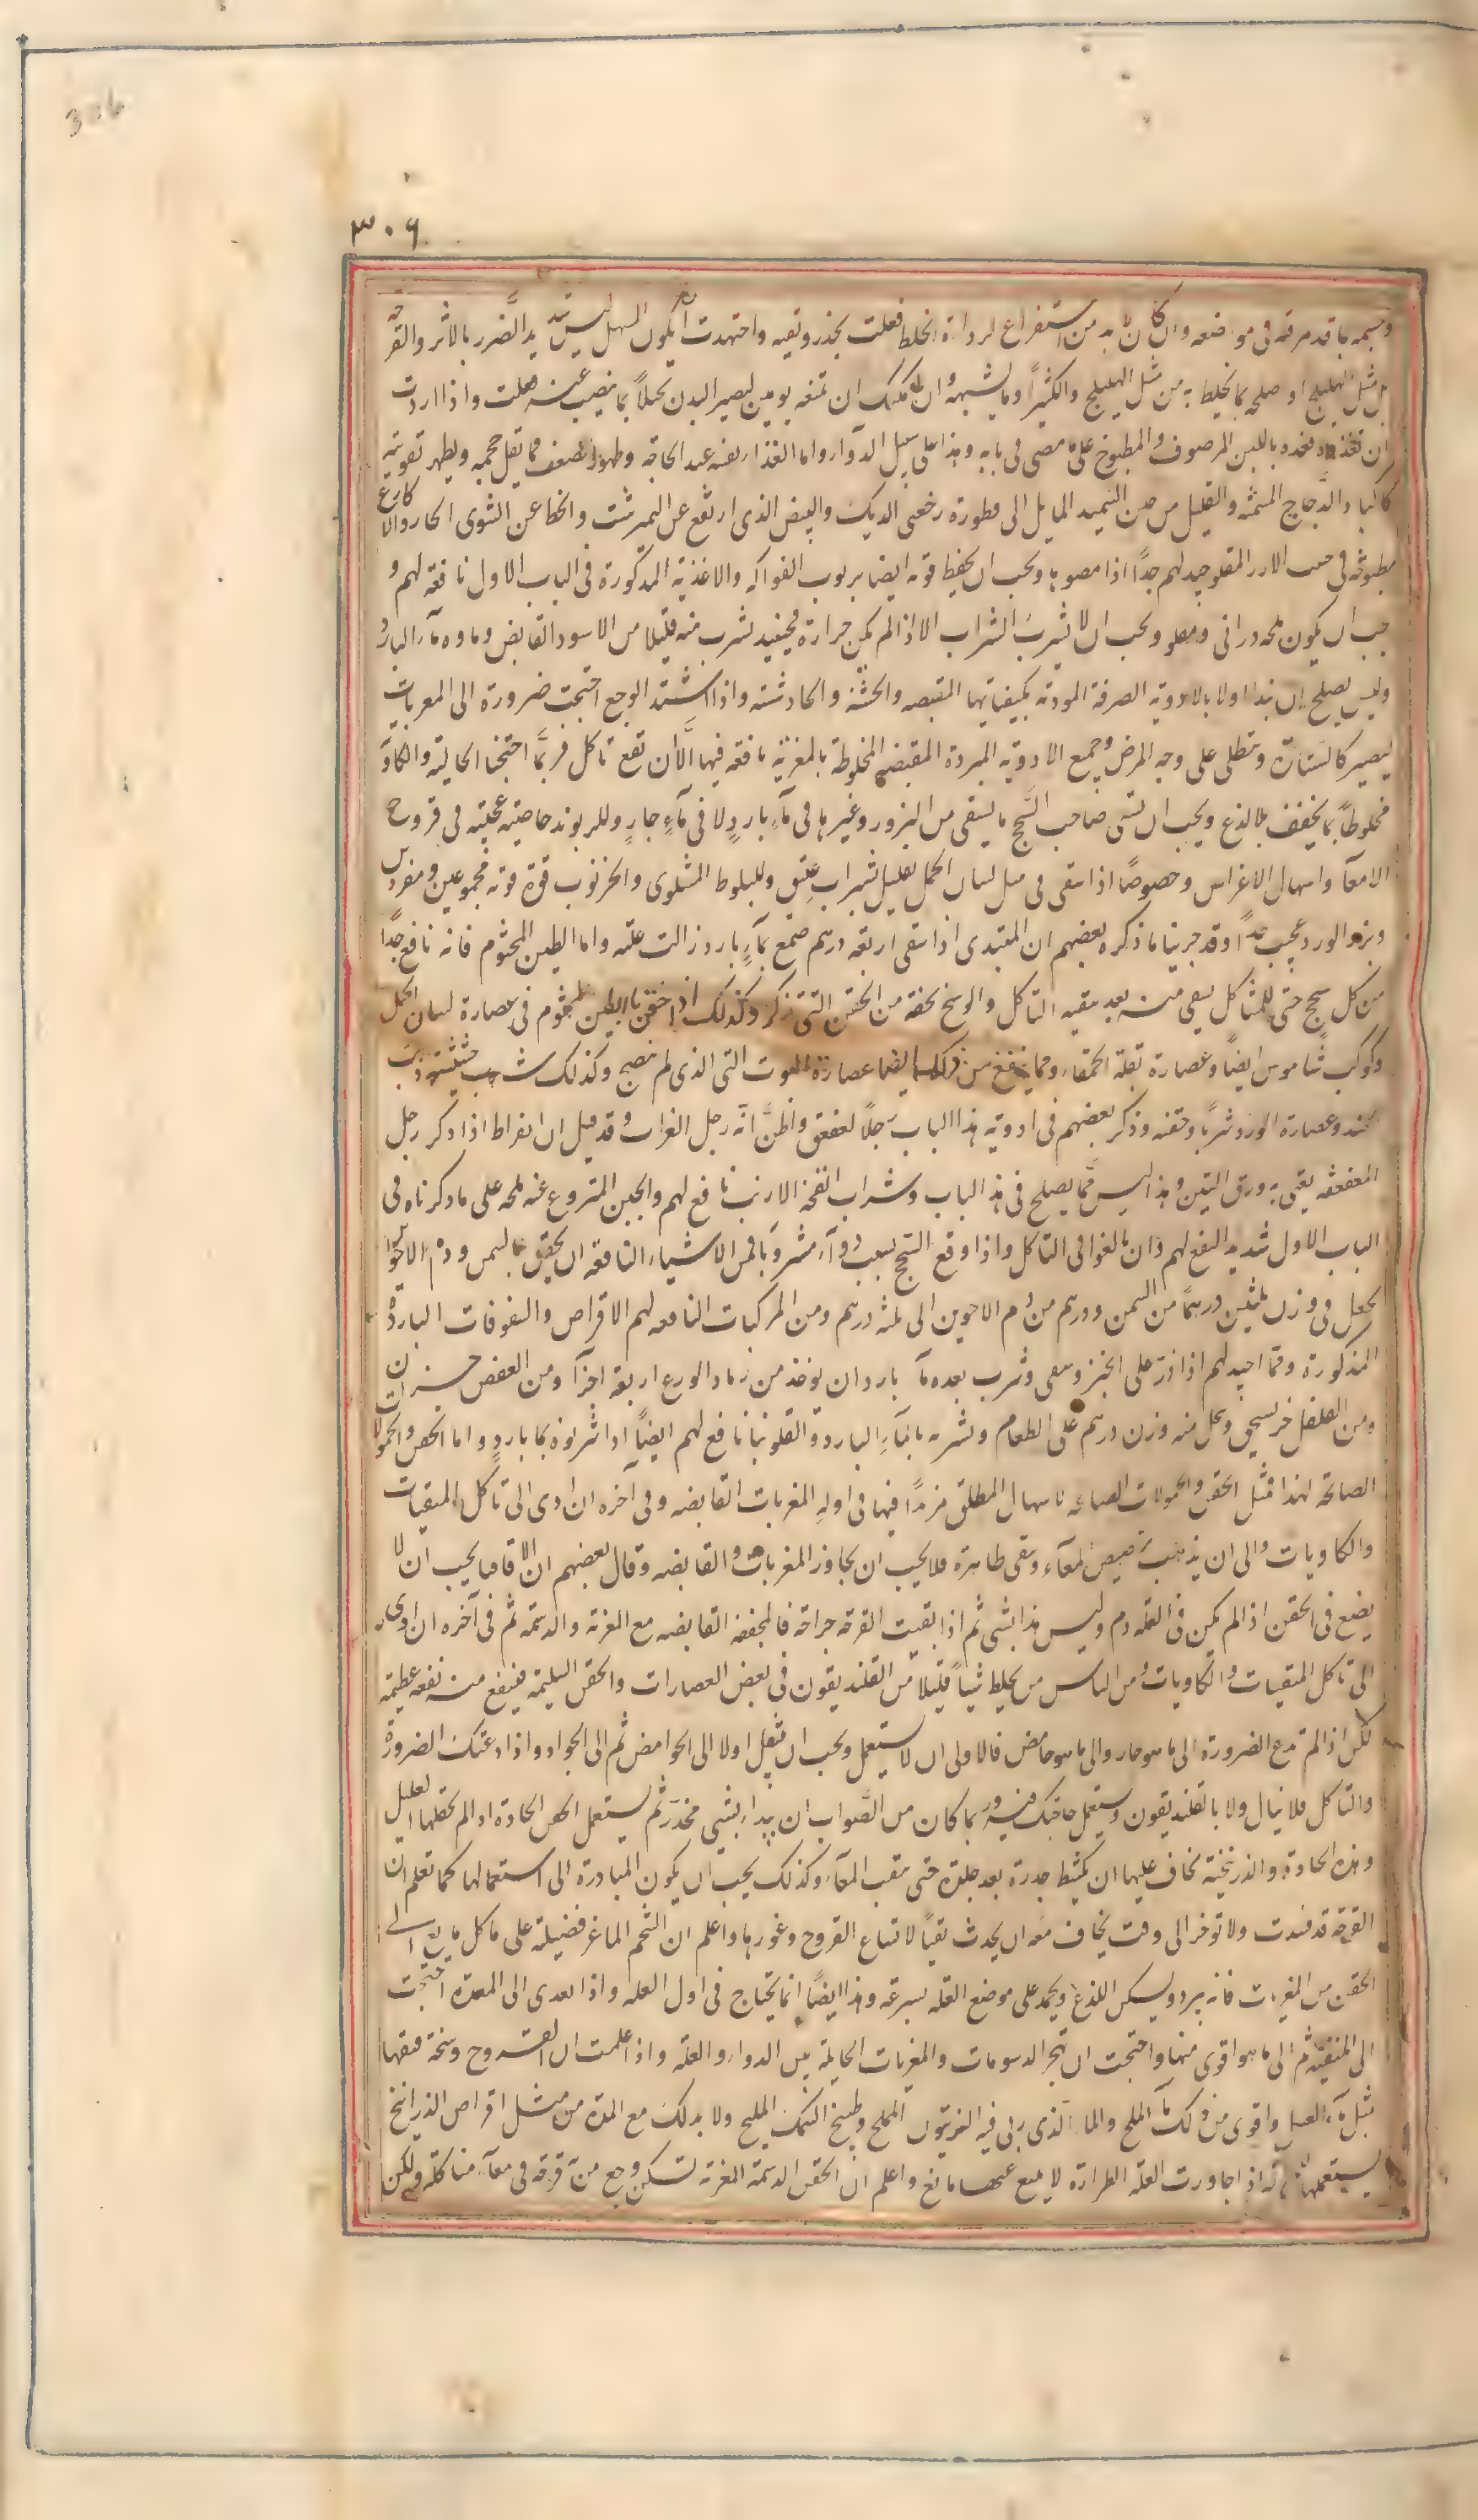 306
٣٠٦
وحسمه بما قد عرفته فى موضعه وان كان لا بد من استفراغ لرداءة الخلط فعلت بحذر وتقية واجتهدت ان يكون المسهل ليس شديد الضرر بالاثر والقرحة
بل مثل الهليلج او صلحه بما يخلط به من مثل الهليلج والكثيرا وما يشبهه وان امكنك ان تمنعه يومين ليصير البدن بما يصيب عنه فعلت واذا اردت
ان تغذوه فغذه باللبن المرضوف والمطبوخ على ما مضى فى بابه وهذا على سبيل الدواء واما الغذاء بعينه عند الحاجة وظهور الضعف فما يقل حجمه ويظهر تقويته
كاكباد الدجاج المسمنة والقليل من خبز السميد المايل الى فطورة وخصى الديك والبيض الذى ارتفع عن النمرشت وانحط عن الشوى الحار والاكارع
مطبوخة فى حب الارز المقلو جيد لهم جدًا اذا مصوها ويجب ان يحفظ قوته ايضا بربوب الفواكه والاغذية المذكورة فى الباب الاول نافعة لهم و
يجب ان يكون ملحه درانى ومقلو ويجب ان لا يشرب الشراب الا اذا لم يكن حرارة فحينئذ يشرب منه قليلا من الاسود القابض وماوه ماء البارد
وليس يصلح ان يبدا اولا بالادوية الصرفة الموذية بكيفياتها المقبضة والخشنة والحادشته واذا اشتد الوجع احتجت ضرورة الى المغريات
ليصير كالستارة ويتطلى على وجه المرض وجميع الادوية المبردة المقبضة المخلوطة بالمغرية نافعة فيها الا ان تقع تاكل فربما احتجنا الجالية والكاوية
مخلوطا بما يجفف بلا لذع ويجب ان تسقى صاحب السحج ما يسقى من البزور وغيرها فى ماء بارد لا فى ماء حار وللريوند خاصية عجيبة فى قروح
الامعاء واسهال الاغراس وخصوصًا اذا سقى فى مثل لسان الحمل بقليل شراب عتيق وللبلوط المشوى والخرنوب قوة قوته مجموعين ومفردين
وبزر الورد عجيب جدًا وقد جربنا ما ذكره بعضهم ان المبتدى اذا سقى اربعة درهم صمغ بماء بارد زالت علته واما الطين المختوم فانه نافع جدًا
من كل سحج حتى للمتاكل يسقى منه بعد تنقيه التاكل والوسخ بحقنة من الحقن التى تذكر وكذلك اذا احتقن بالطين المختوم فى عصارة لسان الحمل
وكوكب شاموس ايضًا وعصارة بقلة الحمقاء ومما ينفع من ذلك ايضا عصارة التوت التى الذى لم ينضج وكذلك شرب حشيشة ذنب
وعصارة الورد شربا وحقنه وذكر بعضهم فى ادوية هذا الباب رجلا لعقعق واظن انه رجل الغراب وقد قيل ان افراط اذا ذكر رجل
العقعقه يعنى به ورق التين وهذا ليس مما يصلح فى هذا الباب وشراب انفحة الارنب نافع لهم والجبن المنزوع عنه ملحه على ما ذكرناه فى
الباب الاول شديد النفع لهم فان بالغوا فى التاكل واذا وقع السحج بسبب دواء مشروبا فمن الاشياء النافعة ان يحقن بالسمن ودم الاخوين
يجعل فى وزن ثلثين درهمًا من السمن ودرهم من دم الاخوين الى ثلثه درهم ومن المركبات النافعه لهم الاقراص والسفوفات الباردة
المذكورة ومما جيد لهم اذا ذر على الخبز وسقى وشرب بعده ماء بارد ان يوخذ من رماد الورع اربعة اجزاء ومن العفص جزان
ومن الفلفل جز يسحق وينخل منه وزن درهم على الطعام وشربه بالماء البارد والقلونيا نافع لهم ايضًا اذا شربوه بماء بارد واما الحقن والحمولات
الصالحة لهذا فمثل الحقن والحمولات الصالحه لاسهال المطلق مزيدًا فيها فى اوله المغريات القابضه وفى آخره ان ادى الى تاكل المنقيات
والكاويات والى ان يذهب خميص المعاء وتبقى طاهرة فلا يجب ان يجاوز المغريات والقابضه وقال بعضهم ان الاقاقيا يجب ان لا
يضع فى الحقن اذا لم يكن فى العله دم وليس هذا بشى ثم اذا بقيت القرحة جراحة فالمجففه القابضه مع المغرية والدسمة ثم فى آخره ان ادى
الى تاكل المنقيات والكاويات ومن الناس من يخلط شيًا قليلا من القلنديقون فى بعض العصارات والحقن السليمة فينفع منه نفعه عظيمة
لكن اذا لم تدع الضرورة الى ما هو حار والى ما هو حامض فالاولى ان لا يستعمل ويجب ان تنقل اولا الى الحوامض ثم الى الحواد واذا دعتك الضرورة
والتاكل فلا تبال ولا بالقلنديقون وتستعمل حاجتك منه وربما كان من الصواب ان يبداء بشى مخدر ثم يستعمل الحقن الحادة اذا لم يحتملها العليل
وهذه الحادة والذرنيخية نخاف عليها ان يكشط جدرة بعد جلدة حتى يثقب المعاء وكذلك يجب ان يكون المبادرة الى استعمالها كما تعلم ان
القرحة قد فسدت ولا توخر الى وقت يخاف منه ان يحدث ثقبًا لاتساع القروح وغورها واعلم ان الشحم الماغر فضيلة على ما كل ما يقع فى
الحقن من المغريات فانه يبرد ويسكن اللذع ويجمد على موضع العله بسرعه وهذا ايضًا انما يحتاج فى اول العله واذا تعدى الى المعدة احتجت
الى المنقيه ثم الى ما هو اقوى منها واحتجت ان تهجر الدسومات والمغريات الحايلة بين الدواء والعلة واذا علمت ان القروح وسخة فنقها
بمثل ماء العسل واقوى من ذلك ماء الملح والماء الذى ربى فيه الزيتون المملح وطبيخ السمك المليح ولا بد لك مع المدة من مثل اقراص الزرانيخ
يستعملها فانه اذا جاورت العلة الطرارة لا يمنع عنها مانع واعلم ان الحقن الدسمة المغرية تسكن وجع من قرحه فى معاء متاكلة ولكن